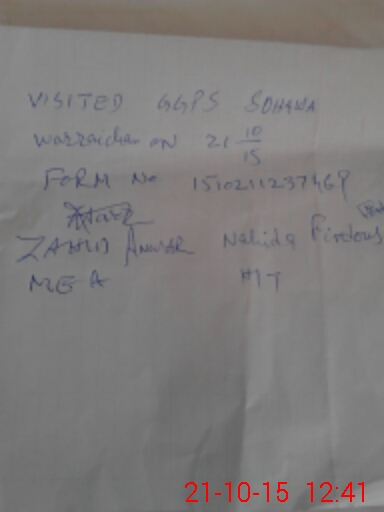 VISITED GGPS SOHAWA
Warraichan ON 21 10/15
FORM No 1510211237469
ZAHID ANWAR Nahida Firdous
MEA HT
21-10-15 12:41